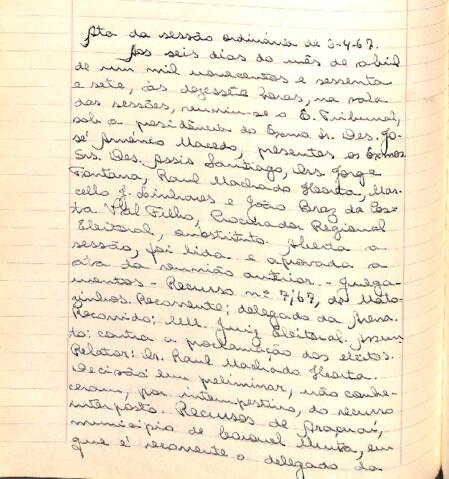 Ata da sessão ordinária de 6-4-67.
Aos seis dias do mês de abril
de um mil novecentos e sessenta
e sete, às dezessete horas, na sala
das sessões, reuniu-se o E. Tribunal,
sob a presidência do Exmo. Sr. Des. Jo-
sé Américo Macedo, presentes os Exmos.
Srs. Des. Assis Santiago, Drs. Jorge
Fontana, Raul Machado Horta, Mar-
cello J. Linhares e João Braz da Cos-
ta Val Filho, Procurador Regional
Eleitoral, substituto. Aberta a
sessão, foi lida e aprovada a
ata da reunião anterior. - Julga-
mentos - Recurso nº 7/67, de Mato-
zinhos. Recorrente: delegado da Arena.
Recorrido: MM. Juiz Eleitoral. Assun-
to: contra a proclamação dos eleitos.
Relator: Dr. Raul Machado Horta.
Decisão: em preliminar, não conhe-
ceram, por intempestivo, do recurso
interposto. Recursos de Araçuaí,
município de Coronel Murta, em
que é recorrente o delegado da